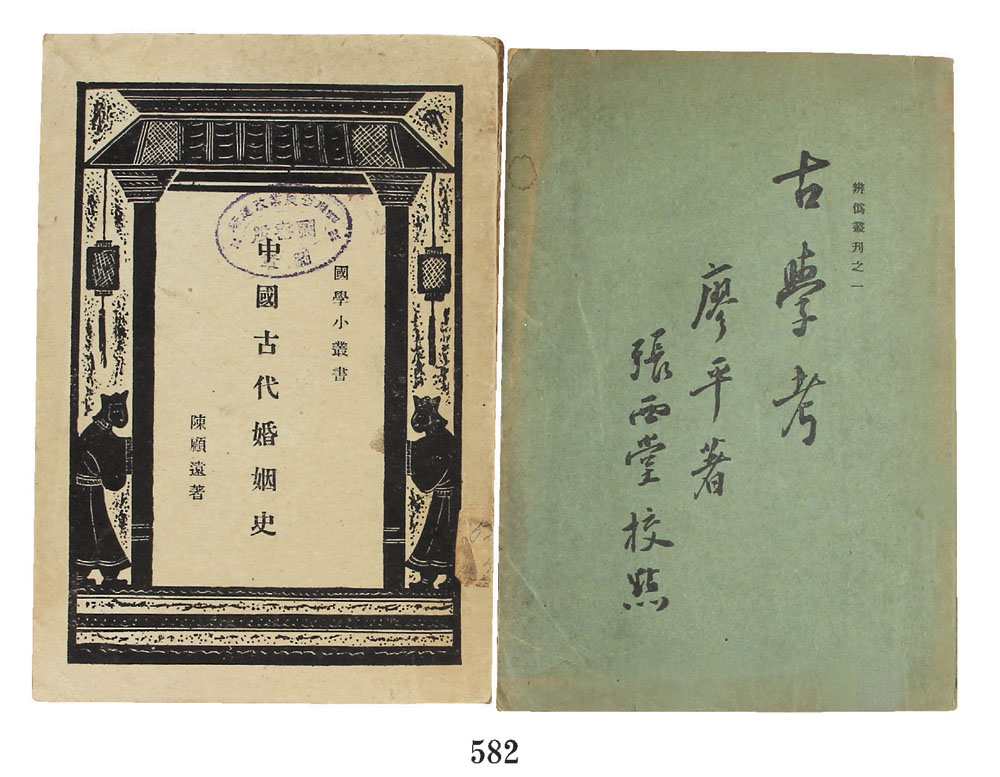 國學小叢書
中國古代婚姻史
陳顧遠著
辨僞叢刊之一
古學考
廖平著
張西堂校點
582